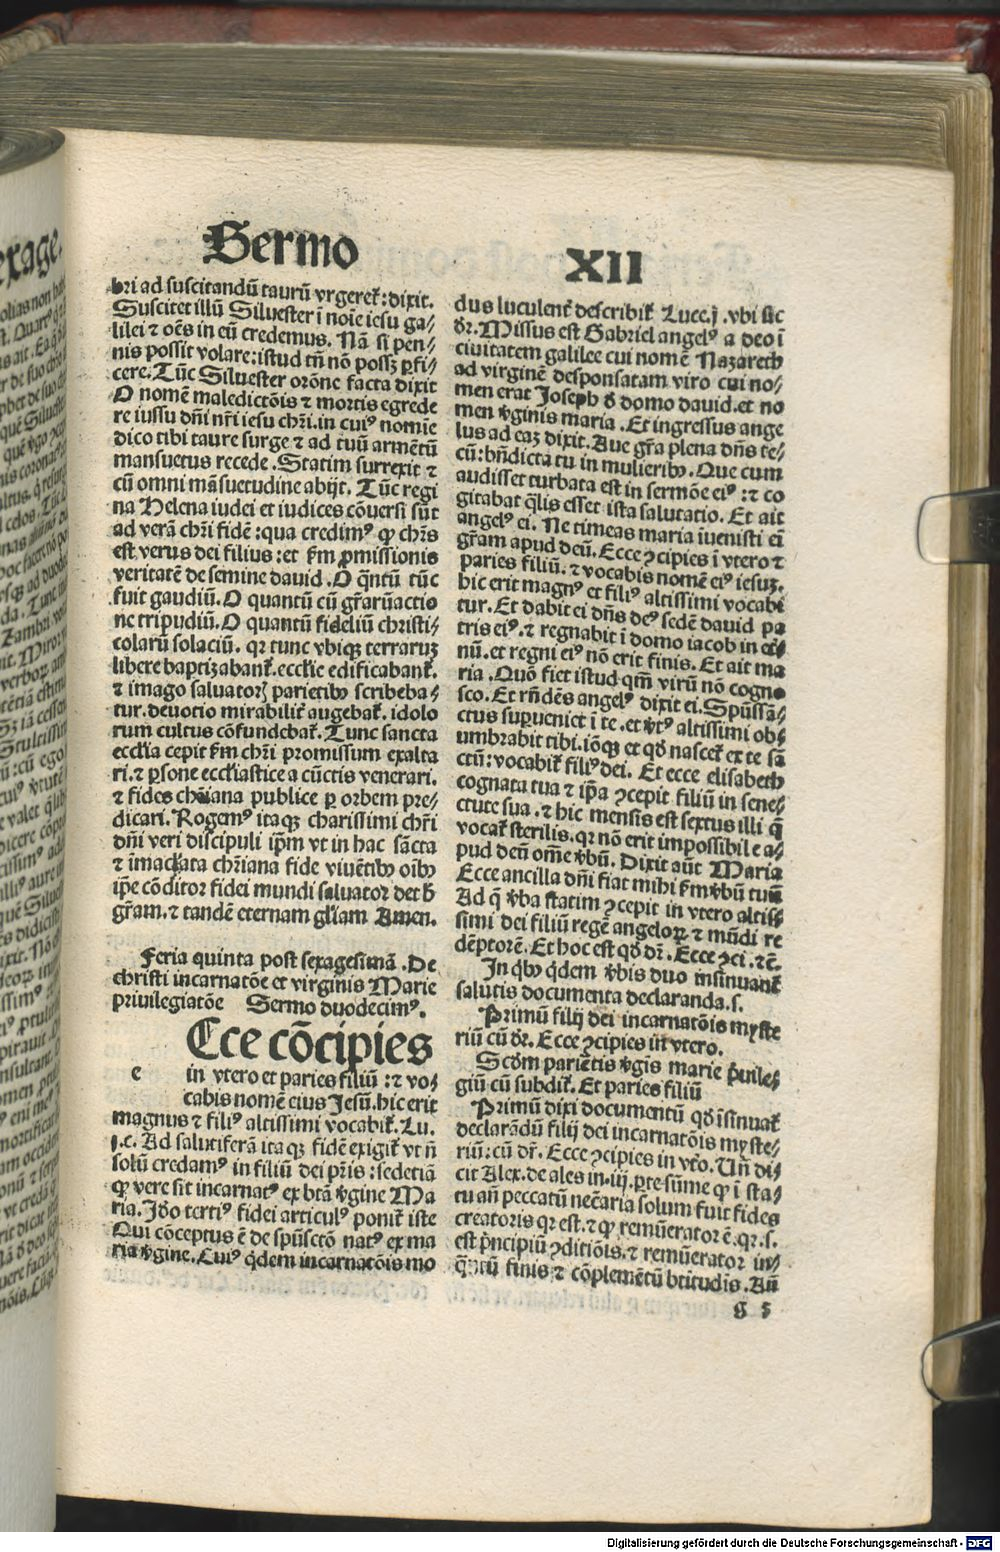 Sermo XII
bri ad suscitandū taurū vrgeret̄: dixit.
Suscitet illū Siluester ī noīe iesu ga⸗
lilei ⁊ oēs in eū credemus. Nā si pen⸗
nis possit volare: istud tn̄ nō possꝫ ꝑfi⸗
cere. Tūc Siluester orōne facta dixit
O nomē maledictōis ⁊ mortis egrede
re iussu dn̄i nr̄i iesu chr̄i. in cuiꝰ nomīe
dico tibi taure surge ⁊ ad tuū armētū
mansuetus recede. Statim surrexit ⁊
cū omni māsuetudine abijt. Tūc regi
na Helena iudei et iudices cōuersi sūt
ad verā chr̄i fidē: qua credimꝰ ꝙ chr̄s
est verus dei filius: et fm̄ ꝓmissionis
veritatē de semine dauid. O q̄ntū tūc
fuit gaudiū. O quantū cū gr̄aꝝactio
ne tripudiū. O quantū fideliū christi⸗
colarū solaciū. qꝛ tunc vbiqꝫ terraruꝫ
libere baptizabant̄. eccl̄ie edificabant̄.
⁊ imago saluatorꝭ parietibꝰ scribeba⸗
tur. deuotio mirabilit̄ augebat̄. idolo
rum cultus cōfundebat̄. Tunc sancta
eccl̄ia cepit fm̄ chr̄i promissum exalta
ri. ⁊ ꝑsone eccl̄iastice a cūctis venerari.
⁊ fides chr̄iana publice ꝑ orbem pre⸗
dicari. Rogemꝰ itaqꝫ charissimi chr̄i
dn̄i veri discipuli ip̄m vt in hac sācta
⁊ īmaclata chr̄iana fide viuētibꝰ oībꝰ
ip̄e cōditor fidei mundi saluator det h̄
gr̄am. ⁊ tandē eternam gl̄iam Amen.
Feria quinta post sexagesimā. De
christi incarnatōe et virginis Marie
priuilegiatōe Sermo duodecimꝰ.
Cce cōcipies
e in vtero et paries filiū: ⁊ vo⸗
cabis nomē eius Jesū. hic erit
magnus ⁊ filiꝰ altissimi vocabit̄. Lu.
j.c. Ad salutiferā itaqꝫ fidē exigit̄ vt n̄
solū credamꝰ in filiū dei pr̄is: sed etiā
ꝙ vere sit incarnatꝰ ex btā v̄gine Ma
ria. Jdo tertiꝰ fidei articulꝰ ponit̄ iste
Qui cōceptus ē de spūsctō natꝰ ex ma
ria v̄gine. Cuiꝰ q̄dem incarnatōis mo
dus luculent̄ describit̄ Luce.j. vbi sic
dr̄. Missus est Gabriel angelꝰ a deo ī
ciuitatem galilee cui nomē Nazareth
ad virginē desponsatam viro cui no⸗
men erat Joseph d̄ domo dauid. et no
men v̄ginis maria. Et ingressus ange
lus ad eaꝫ dixit. Aue gr̄a plena dn̄s te⸗
cū: bn̄dicta tu in mulieribꝰ. Que cum
audisset turbata est in sermōe eiꝰ: ⁊ co
gitabat q̄lis esset ista salutatio. Et ait
angelꝰ ei. Ne timeas maria īuenisti eī
gr̄am apud deū. Ecce ↄcipies ī vtero ⁊
paries filiū. ⁊ vocabis nomē eiꝰ iesuꝫ.
hic erit magnꝰ et filiꝰ altissimi vocabi
tur. Et dabit ei dn̄s deꝰ sedē dauid pa
tris eiꝰ. ⁊ regnabit ī domo iacob in et̄
nū. et regni eiꝰ nō erit finis. Et ait ma
ria. Quō fiet istud qm̄ virū nō cogno
sco. Et rn̄dēs angelꝰ dixit ei. Spūssā⸗
ctus suꝑueniet ī te. et v̄tꝰ altissimi ob⸗
umbrabit tibi. iōqꝫ et qd̄ nascet̄ ex te sā
ctū: vocabit̄ filiꝰ dei. Et ecce elisabeth
cognata tua ⁊ ip̄a ↄcepit filiū in sene⸗
ctute sua. ⁊ hic mensis est sextus illi q̄
vocat̄ sterilis. qꝛ nō erit impossibile a⸗
pud deū om̄e v̄bū. Dixit aūt Maria
Ecce ancilla dn̄i fiat mihi fm̄ v̄bū tuū
Ad q̄ v̄ba statim ↄcepit in vtero altis⸗
simi dei filiū regē angeloꝝ ⁊ mūdi re
dēptorē. Et hoc est qd̄ dr̄. Ecce ↄci. ⁊c̄.
Jn qb̄ꝰ q̄dem v̄bis duo insinuant̄
salutis documenta declaranda. s.
Primū filij dei incarnatōis myste
riū cū dr̄. Ecce ↄcipies in vtero.
Scdm̄ pariētis v̄gis marie p̄uile⸗
giū cū subdit̄. Et paries filiū
Primū dixi documentū qd̄ īsinuat̄
declarādū filij dei incarnatōis myste⸗
riū: cū dr̄. Ecce ↄcipies in vt̄o. Un̄ di⸗
cit Alex. de ales in. iij. ꝑte sūme ꝙ ī sta⸗
tu an̄ peccatū nec̄aria solum fuit fides
creatoris qꝛ est. ⁊ ꝙ remūerator ē. qꝛ. s.
est p̄ncipiū ↄditiōis. ⁊ remūerator in⸗
q̄ntū finis ⁊ cōplemētū btitudis. Aū
g 5
Digitalisierung gefördert durch die Deutsche Forschungsgemeinschaft - DFG